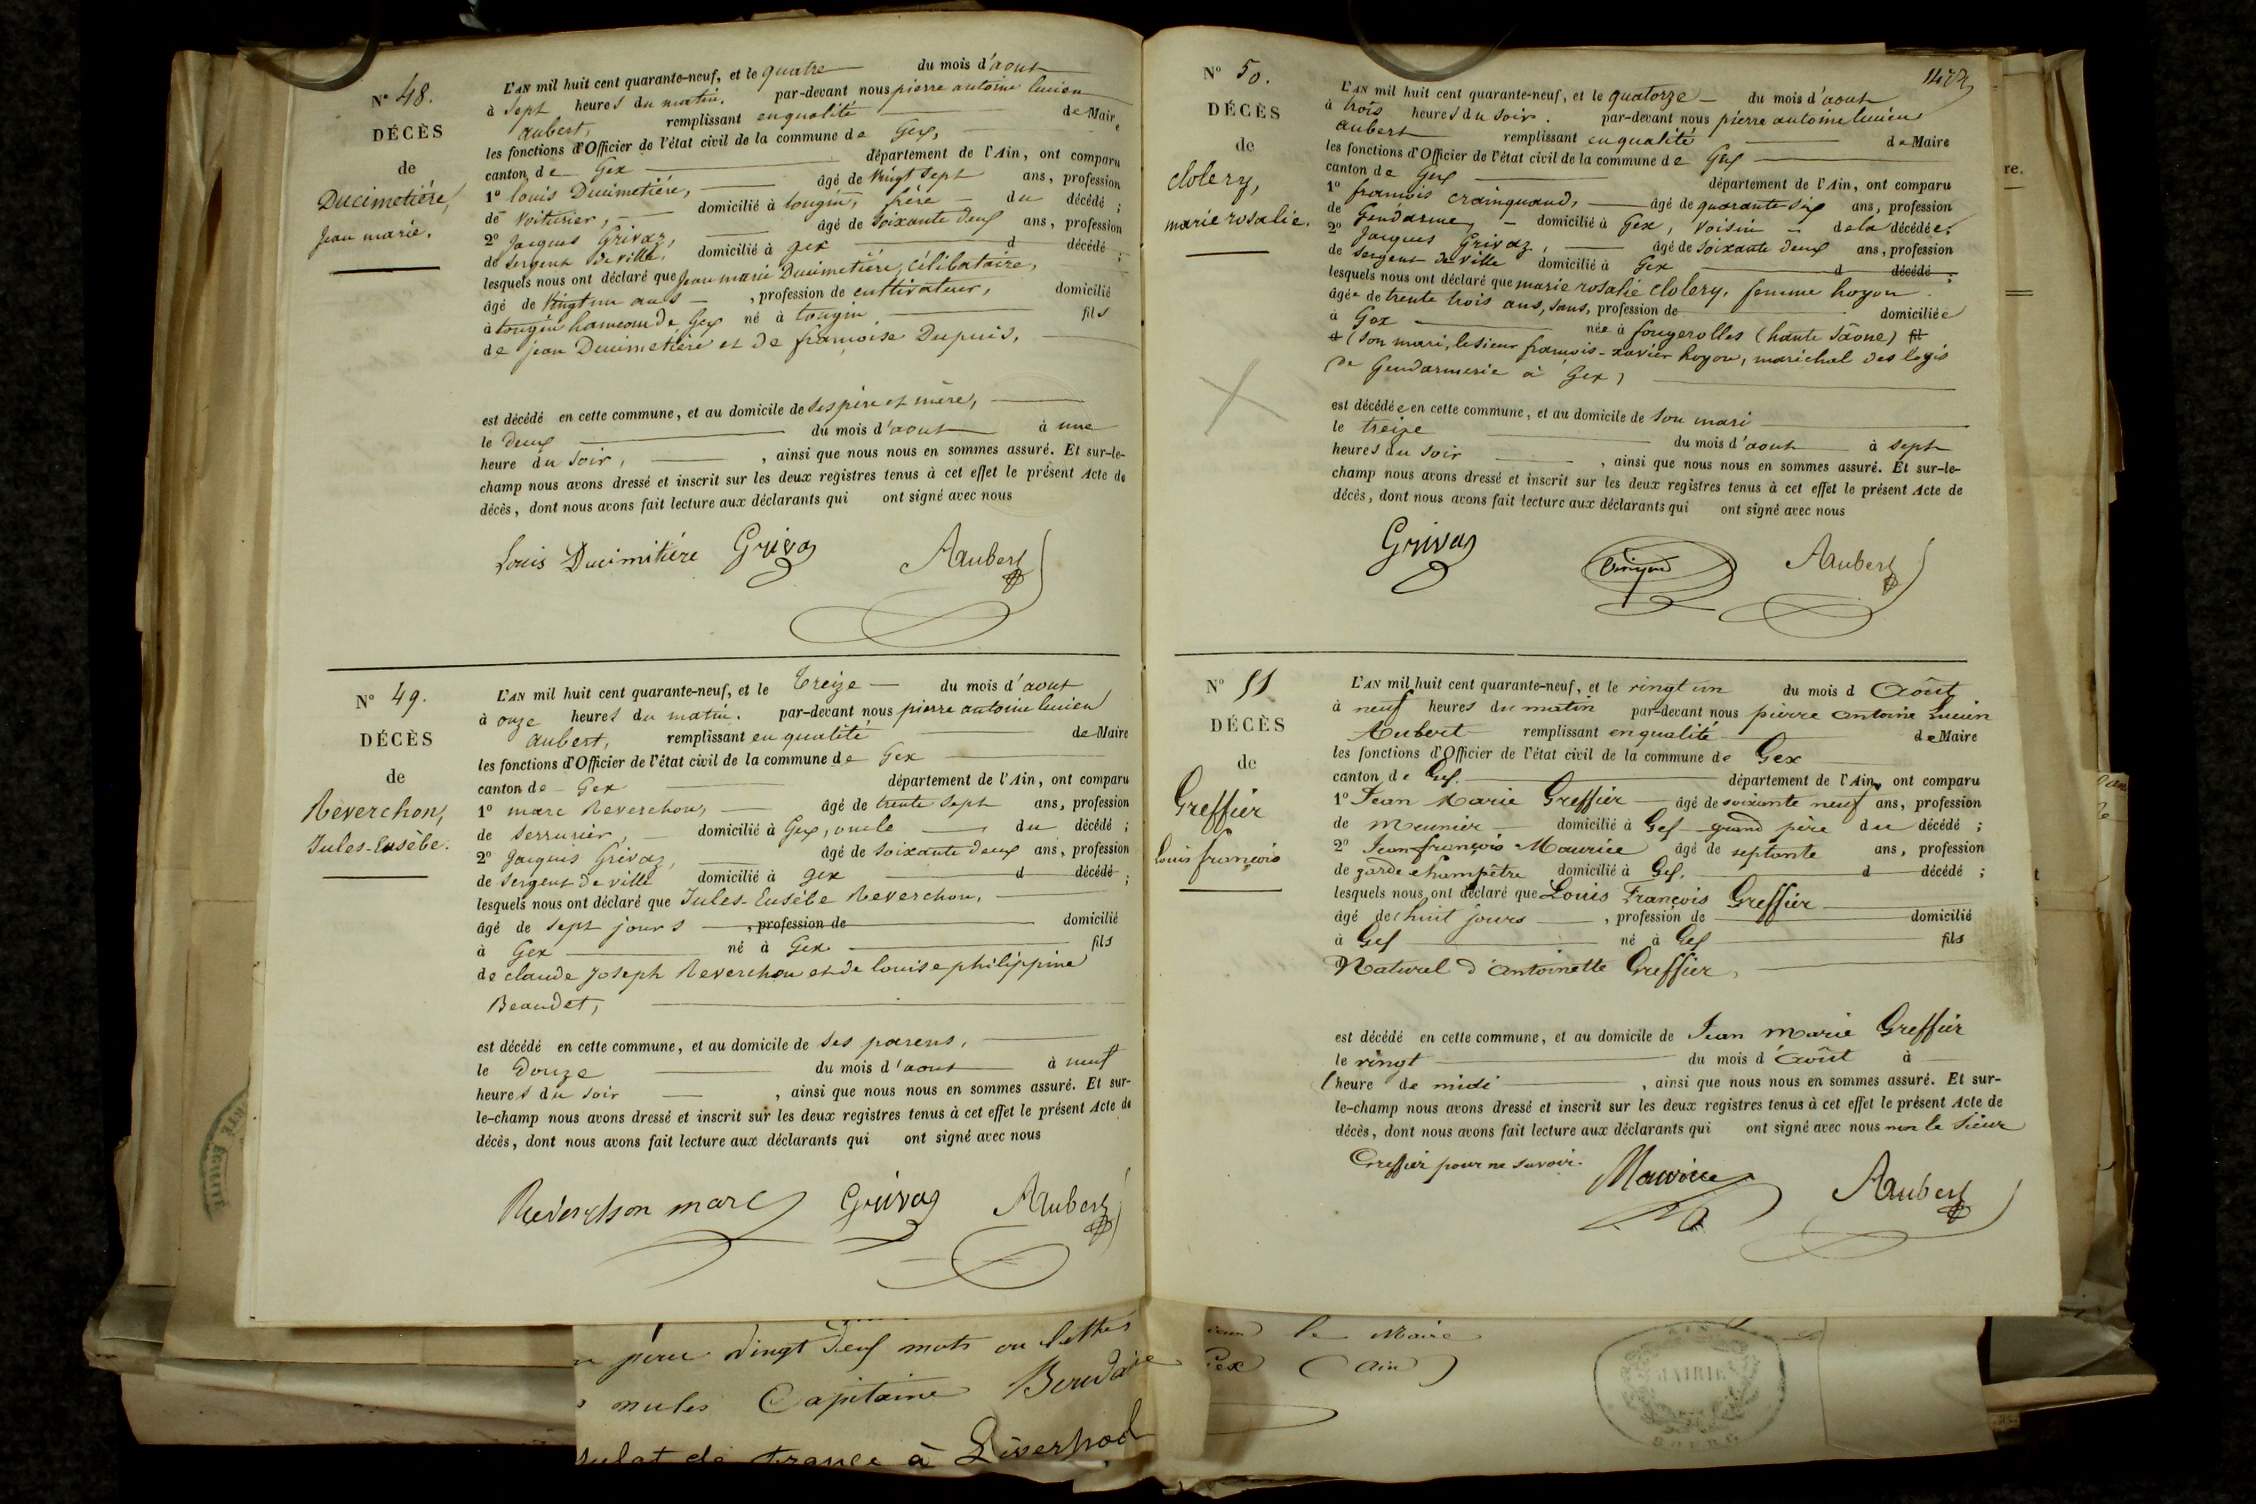 N° 48.
DÉCÈS
de
Ducimetiére,
Jean marie.
L'AN mil huit cent quarante-neuf, et le quatre du mois d'aout
à sept heures du matin. par-devant nous pierre antoine lucien
aubert, remplissant en qualité de Maire
les fonctions d'Officier de l'état civil de la commune de Gex,
canton de Gex département de l'Ain, ont comparu
1° louis Ducimetiére, âgé de vingt sept ans, profession
de voiturier, domicilié à tougin, frère du décédé ;
2° Jacques Grivaz, âgé de soixante deux ans, profession
de sergent de ville, domicilié à gex d décédé ;
lesquels nous ont déclaré que jean marie Ducimetiére, célibataire,
âgé de vingt un ans , profession de cultivateur, domicilié
à tougin hameau de Gex né à tougin fils
de jean Ducimetiére et de françoise Dupuis,
est décédé en cette commune, et au domicile de ses pére et mère,
le deux du mois d'aout à une
heure du soir, , ainsi que nous nous en sommes assuré. Et sur-le-
champ nous avons dressé et inscrit sur les deux registres tenus à cet effet le présent Acte de
décès, dont nous avons fait lecture aux déclarants qui ont signé avec nous
Louis Ducimitiére Grivaz Aaubert
N° 49.
DÉCÈS
de
Reverchon,
Jules-Eusèbe.
L'AN mil huit cent quarante-neuf, et le treize du mois d'aout
à onze heures du matin. par-devant nous pierre antoine lucien
aubert, remplissant en qualité de Maire
les fonctions d'Officier de l'état civil de la commune de Gex
canton de Gex département de l'Ain, ont comparu
1° marc Reverchon, âgé de trente sept ans, profession
de serrurier, domicilié à Gex, oncle du décédé ;
2° Jacques Grivaz, âgé de soixante deux ans, profession
de sergent de ville domicilié à gex d décédé ;
lesquels nous ont déclaré que Jules-Eusèbe Reverchon,
âgé de sept jours , profession de domicilié
à Gex né à Gex fils
de claude joseph Reverchon et de louise philippine
Beaudet,
est décédé en cette commune, et au domicile de ses parens,
le douze du mois d'aout à neuf
heures du soir , ainsi que nous nous en sommes assuré. Et sur-
le-champ nous avons dressé et inscrit sur les deux registres tenus à cet effet le présent Acte de
décès, dont nous avons fait lecture aux déclarants qui ont signé avec nous
Reverchon marc Grivaz Aaubert
N° 50.
DÉCÈS
de
clolery,
marie rosalie.
L'AN mil huit cent quarante-neuf, et le quatorze du mois d'aout
à trois heures du soir. par-devant nous pierre antoine lucien
aubert remplissant en qualité de Maire
les fonctions d'Officier de l'état civil de la commune de Gex
canton de Gex département de l'Ain, ont comparu
1° françois crainquand, âgé de quarante six ans, profession
de Gendarme, domicilié à Gex, voisin de la décédée;
2° Jacques Grivaz, âgé de soixante deux ans, profession
de sergent de ville domicilié à Gex d décédé ;
lesquels nous ont déclaré que marie rosalie clolery, femme hoyon
âgée de trente trois ans, sans, profession de domiciliée
à Gex née à fougerolles (haute Sâone) fil
d (son mari, le sieur françois-xavier hoyon, maréchal des logis
de Gendarmerie à Gex)
est décédée en cette commune, et au domicile de son mari
le treize du mois d'aout à sept
heures du soir , ainsi que nous nous en sommes assuré. Et sur-le-
champ nous avons dressé et inscrit sur les deux registres tenus à cet effet le présent Acte de
décès, dont nous avons fait lecture aux déclarants qui ont signé avec nous
Grivaz Aaubert
N° 51
DÉCÈS
de
Greffier
Louis françois
L'AN mil huit cent quarante-neuf, et le vingt un du mois d Août
à neuf heures du matin par-devant nous pierre antoine Lucien
Aubert remplissant en qualité de Maire
les fonctions d'Officier de l'état civil de la commune de Gex
canton de Gex. département de l'Ain, ont comparu
1° Jean Marie Greffier âgé de soixante neuf ans, profession
de meunier domicilié à Gex grand père du décédé ;
2° Jean françois Maurice âgé de septante ans, profession
de garde champêtre domicilié à Gex. d décédé ;
lesquels nous ont déclaré que Louis François Greffier
âgé de huit jours , profession de domicilié
à Gex né à Gex fils
Naturel d'Antoinette Greffier,
est décédé en cette commune, et au domicile de Jean Marie Greffier
le vingt du mois d'Août à
l'heure de midi , ainsi que nous nous en sommes assuré. Et sur-
le-champ nous avons dressé et inscrit sur les deux registres tenus à cet effet le présent Acte de
décès, dont nous avons fait lecture aux déclarants qui ont signé avec nous non le Sieur
Greffier pour ne savoir.
Maurice Aaubert
vingt deux mots ou lettres
nules Capitaine
de france à Liverpool
le Maire
Gex (Ain)
AIN
MAIRIE